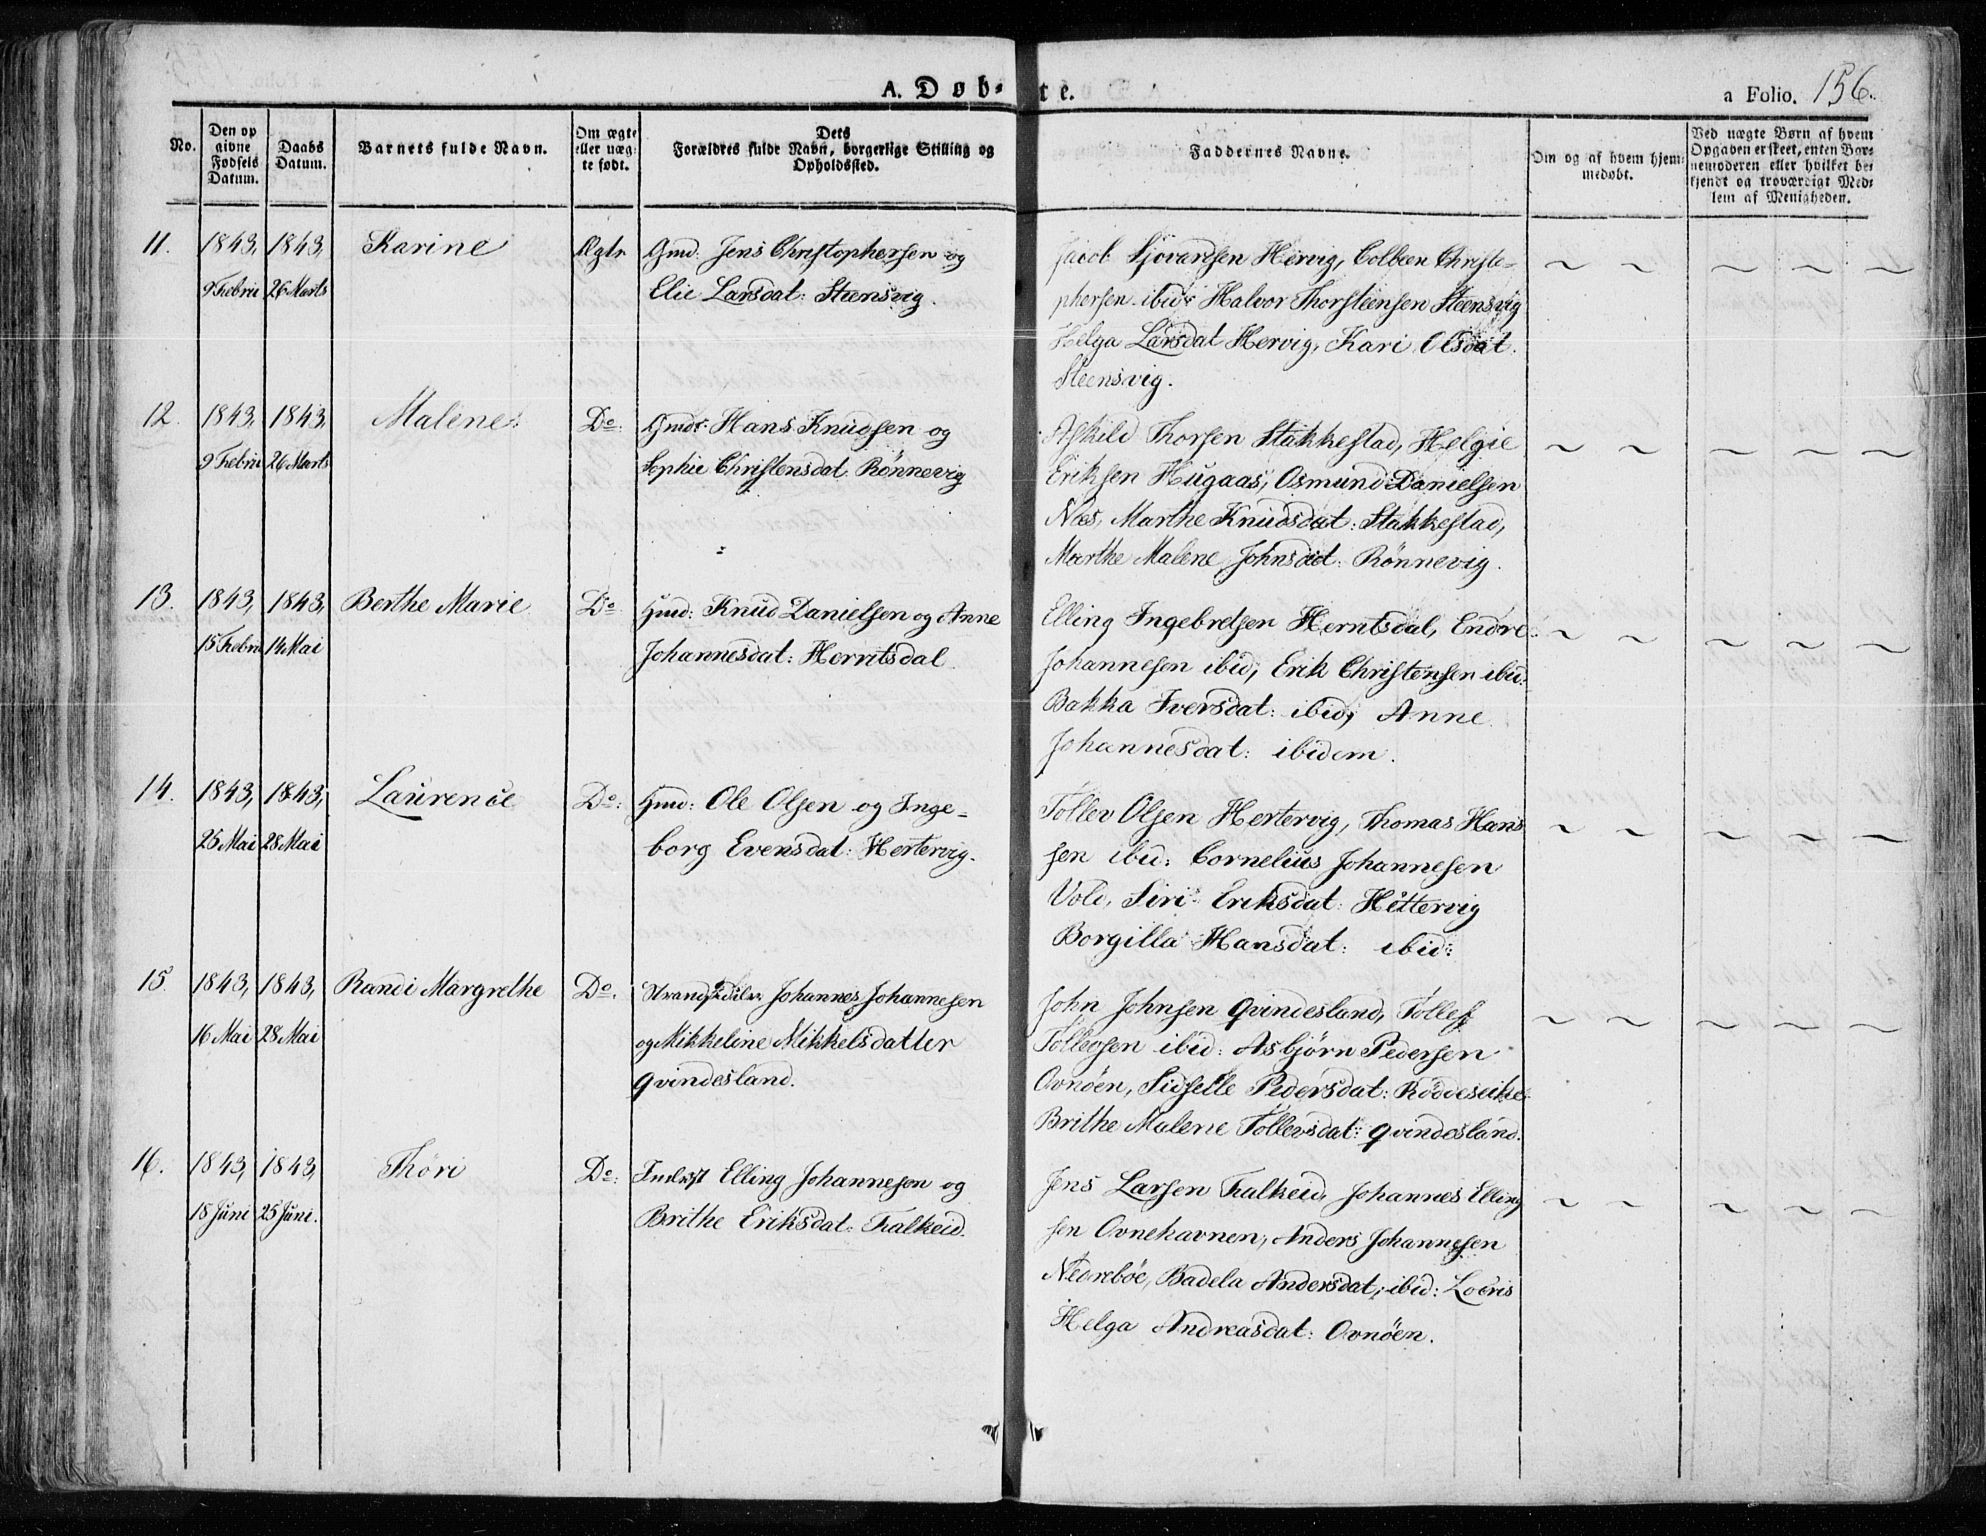 A. Døb- te.
a Folio. 156.
No.
Den op
givne
Fødsels
Datum.
Daabs
Datum.
Barnets fulde Navn.
Om ægte
eller uæg-
te født.
Dets
Forældres fulde Navn, borgerlige Stilling og
Opholdssted.
Faddernes Navne.
Om og af hvem hjem-
medøbt.
Ved uægte Børn af hvem
Opgaven er skeet, enten Bar-
nemoderen eller hvilket be-
kjendt og troværdigt Med-
lem af Menigheden.
11. 1843, 1843, Karine Ægte Gmd: Jens Christophersen og
9 Febru 26 Marts Elie Larsdat: Steensvig.
Jacob Sjovarsen Hervig, Colbeen Christo-
phersen ibid: Halvor Thorsteensen Steensvig
Helga Larsdat Hervig, Kari Olsdat.
Steensvig.
12. 1843, 1843, Malene: Do: Gmd: Hans Knudsen og
9 Febru 26 Marts Sophie Christensdat. Rönnevig
Askild Thorsen Stakkestad, Helgie
Eriksen Hugaas, Osmund Danielsen
Næs, Marthe Knudsdat: Stakkestad,
Marthe Malene Johnsdat: Rönnevig.
13. 1843, 1843, Berthe Marie Do Hmd: Knud Danielsen og Anne
15 Febru 14 Mai Johannesdat: Herntsdal.
Elling Ingebretsen Herntsdal, Endre
Johannesen ibid, Erik Christensen ibid:
Bakka Iversdat: ibid, Anne
Johannesdat: ibidem.
14. 1843, 1843, Laurence Do: Hmd: Ole Olsen og Inge-
25 Mai 28 Mai borg Evensdat: Hertervig.
Tollev Olsen Hertervig, Thomas Hans
sen ibid: Cornelius Johannesen
Vold, Siri Eriksdat: Hettervig
Borgilla Hansdat: ibid:
15. 1843, 1843, Randi Margrethe Do. Strandsidder Johannes Johannesen
16 Mai 28 Mai og Mikkeline Mikkelsdatter
Qvindesland.
John Johnsen Qvindesland, Tollef
Tollevsen ibid: Asbjørn Pedersen
Ovnöen, Sidselle Pedersdat: Röddeseike
Brithe Malene Tollevsdat: Qvindesland.
16. 1843, 1843, Thöri Do: Inderst Elling Johannesen og
15 Juni 25 Juni. Brithe Eriksdat: Falkeid.
Jens Larsen Falkeid, Johannes Elling
sen Ovnehavnen, Anders Johannesen
Nedreböe, Badela Andersdat, ibid:
Helga Andreasdat: Ovnöen.